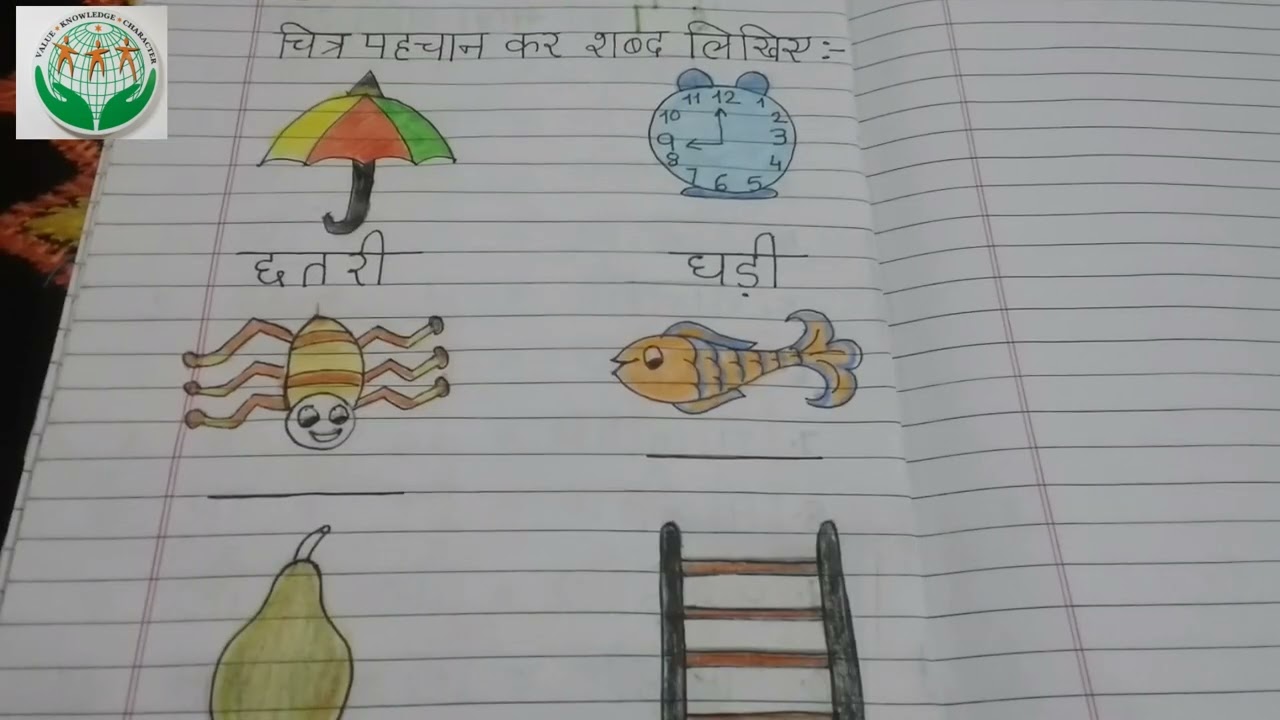 VALUE • KNOWLEDGE • CHARACTER
चित्र पहचान कर शब्द लिखिए :-
11 12 1
10 2
9 3
8 4
7 6 5
छतरी घड़ी